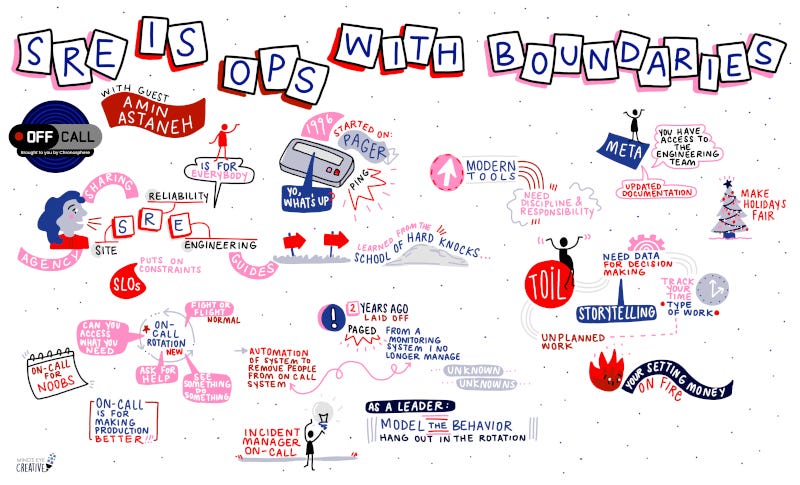 SRE IS OPS WITH BOUNDARIES
WITH GUEST
AMIN
ASTANEH
OFF CALL
Brought to you by Chronosphere
IS FOR
EVERYBODY
SHARING
RELIABILITY
SRE
SITE
ENGINEERING
AGENCY
GUIDES
SLOs
PUTS ON
CONSTRAINTS
1996
STARTED ON:
PAGER
YO,
WHAT'S UP
PING
LEARNED FROM THE
SCHOOL OF HARD KNOCKS...
MODERN
TOOLS
NEED
DISCIPLINE &
RESPONSIBILITY
META
YOU HAVE
ACCESS TO
THE
ENGINEERING
TEAM
UPDATED
DOCUMENTATION
MAKE
HOLIDAYS
FAIR
TOIL
NEED DATA
FOR DECISION
MAKING
STORYTELLING
TRACK
YOUR
TIME
TYPE
OF WORK
UNPLANNED
WORK
YOUR SETTING MONEY
ON FIRE
ON-CALL
FOR
NOOBS
CAN YOU
ACCESS
WHAT YOU
NEED
ON-
CALL
ROTATION
NEW
FIGHT OR
FLIGHT
NORMAL
ASK FOR
HELP
SEE
SOMETHING
DO
SOMETHING
ON-CALL
IS FOR
MAKING
PRODUCTION
BETTER!!!
AUTOMATION
OF SYSTEM TO
REMOVE PEOPLE
FROM ON CALL
SYSTEM
2 YEARS AGO
LAID OFF
PAGED
FROM A
MONITORING
SYSTEM I NO
LONGER MANAGE
UNKNOWN
UNKNOWNS
INCIDENT
MANAGER
ON-CALL
AS A LEADER:
MODEL THE BEHAVIOR
HANG OUT IN THE ROTATION
MIND'S EYE
CREATIVE